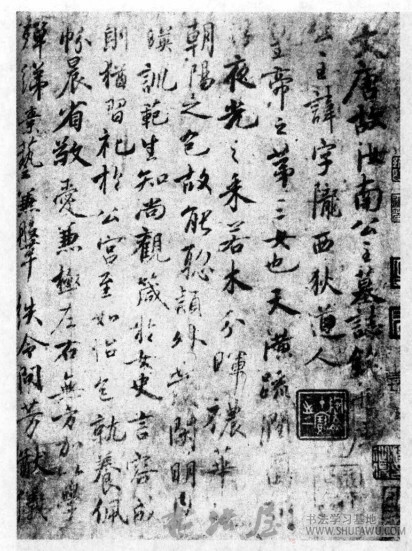 大唐故汝南公主墓誌銘
公主諱字隴西狄道人
皇帝之第三女也天潢疏潤
夜光之采若木分暉穠華
朝陽之色故能聡穎外發閑明
暎訓範生知尚觀箴於女史言容成
則猶習礼於公宮至如怡色就養佩
帉晨省敬愛兼極左右無方加以學
殫綈素藝兼鞶紩令問芳猷儀
书法学习基地
WWW.SHUFAWU.COM